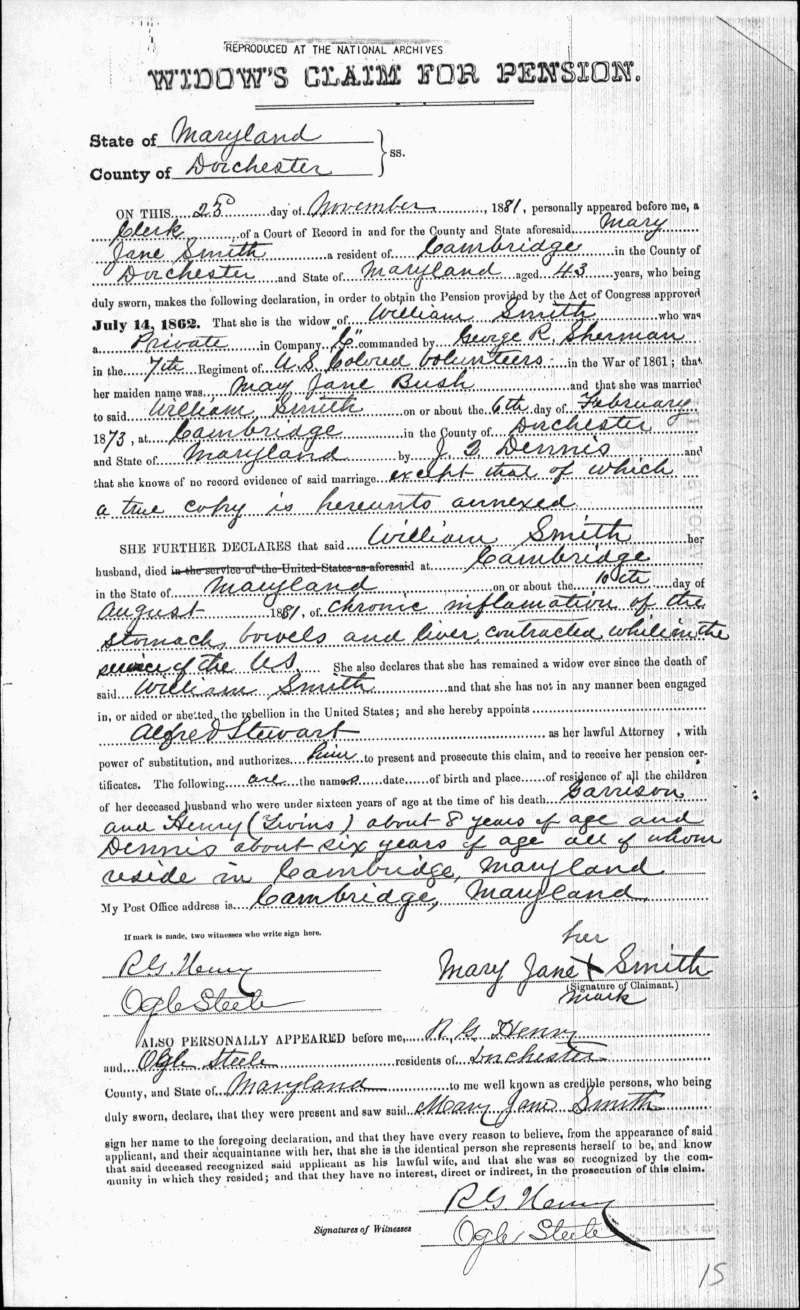 REPRODUCED AT THE NATIONAL ARCHIVES
WIDOW'S CLAIM FOR PENSION.
State of Maryland
County of Dorchester } ss.
ON THIS 25th day of November, 1881, personally appeared before me, a
Clerk, of a Court of Record in and for the County and State aforesaid, Mary
Jane Smith a resident of Cambridge in the County of
Dorchester and State of Maryland aged 43 years, who being
duly sworn, makes the following declaration, in order to obtain the Pension provided by the Act of Congress approved
July 14, 1862. That she is the widow of William Smith who was
a Private in Company "C" commanded by George R. Sherman
in the 7th Regiment of U.S. Colored Volunteers in the War of 1861; that
her maiden name was, Mary Jane Bush and that she was married
to said William Smith on or about the 6th day of February
1873, at Cambridge in the County of Dorchester
and State of Maryland by J. Dennis and
that she knows of no record evidence of said marriage except that of which
a true copy is hereunto annexed
SHE FURTHER DECLARES that said William Smith her
husband, died in the service of the United States as aforesaid at Cambridge
in the State of Maryland on or about the 10th day of
August 1881, of chronic inflamation of the
stomach, bowels and liver contracted while in the
service of the US. She also declares that she has remained a widow ever since the death of
said William Smith and that she has not in any manner been engaged
in, or aided or abetted, the rebellion in the United States; and she hereby appoints
Alfred Stewart as her lawful Attorney, with
power of substitution, and authorizes him to present and prosecute this claim, and to receive her pension cer-
tificates. The following are the names date of birth and place of residence of all the children
of her deceased husband who were under sixteen years of age at the time of his death Garrison
and Henry (Twins) about 8 years of age and
Dennis about six years of age all of whom
reside in Cambridge, Maryland
My Post Office address is Cambridge, Maryland.
If mark is made, two witnesses who write sign here.
her
R.G. Henry
Mary Jane X Smith
(Signature of Claimant.)
Ogle Steele
mark
ALSO PERSONALLY APPEARED before me, R. G. Henry
and Ogle Steele residents of Dorchester
County, and State of Maryland to me well known as credible persons, who being
duly sworn, declare, that they were present and saw said Mary Jane Smith
sign her name to the foregoing declaration, and that they have every reason to believe, from the appearance of said
applicant, and their acquaintance with her, that she is the identical person she represents herself to be, and know
that said deceased recognized said applicant as his lawful wife, and that she was so recognized by the com-
munity in which they resided; and that they have no interest, direct or indirect, in the prosecution of this claim.
R G Henry
Signatures of Witnesses
Ogle Steele
15